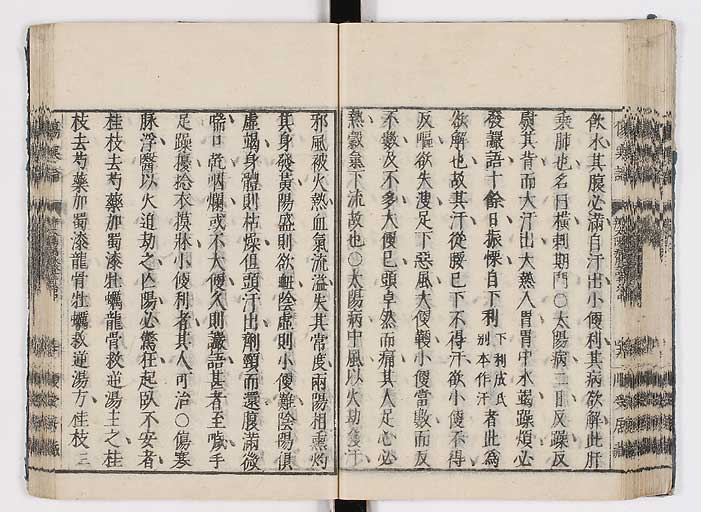 飲水其腹必滿自汗出小便利其病欲解此肝
乘肺也名曰橫刺期門〇太陽病二日反躁反
熨其背而大汗出大熱入胃胃中水竭躁煩必
發讝語十餘日振慄自下利下利成氏別本作汗者此爲
欲解也故其汗從腰已下不得汗欲小便不得
反嘔欲失溲足下惡風大便鞕小便當數而反
不數及不多大便已頭卓然而痛其人足心必
熱穀氣下流故也〇太陽病中風以火劫發汗
邪風被火熱血氣流溢失其常度兩陽相熏灼
其身發黃陽盛則欲衄陰虛則小便難陰陽俱
虛竭身體則枯燥但頭汗出劑頸而還腹滿微
喘口乾咽爛或不大便久則讝語甚者至噦手
足躁擾捻衣摸牀小便利者其人可治〇傷寒
脉浮醫以火迫劫之亾陽必驚狂起臥不安者
桂枝去芍藥加蜀漆牡蠣龍骨救逆湯主之桂
枝去芍藥加蜀漆龍骨牡蠣救逆湯方桂枝三